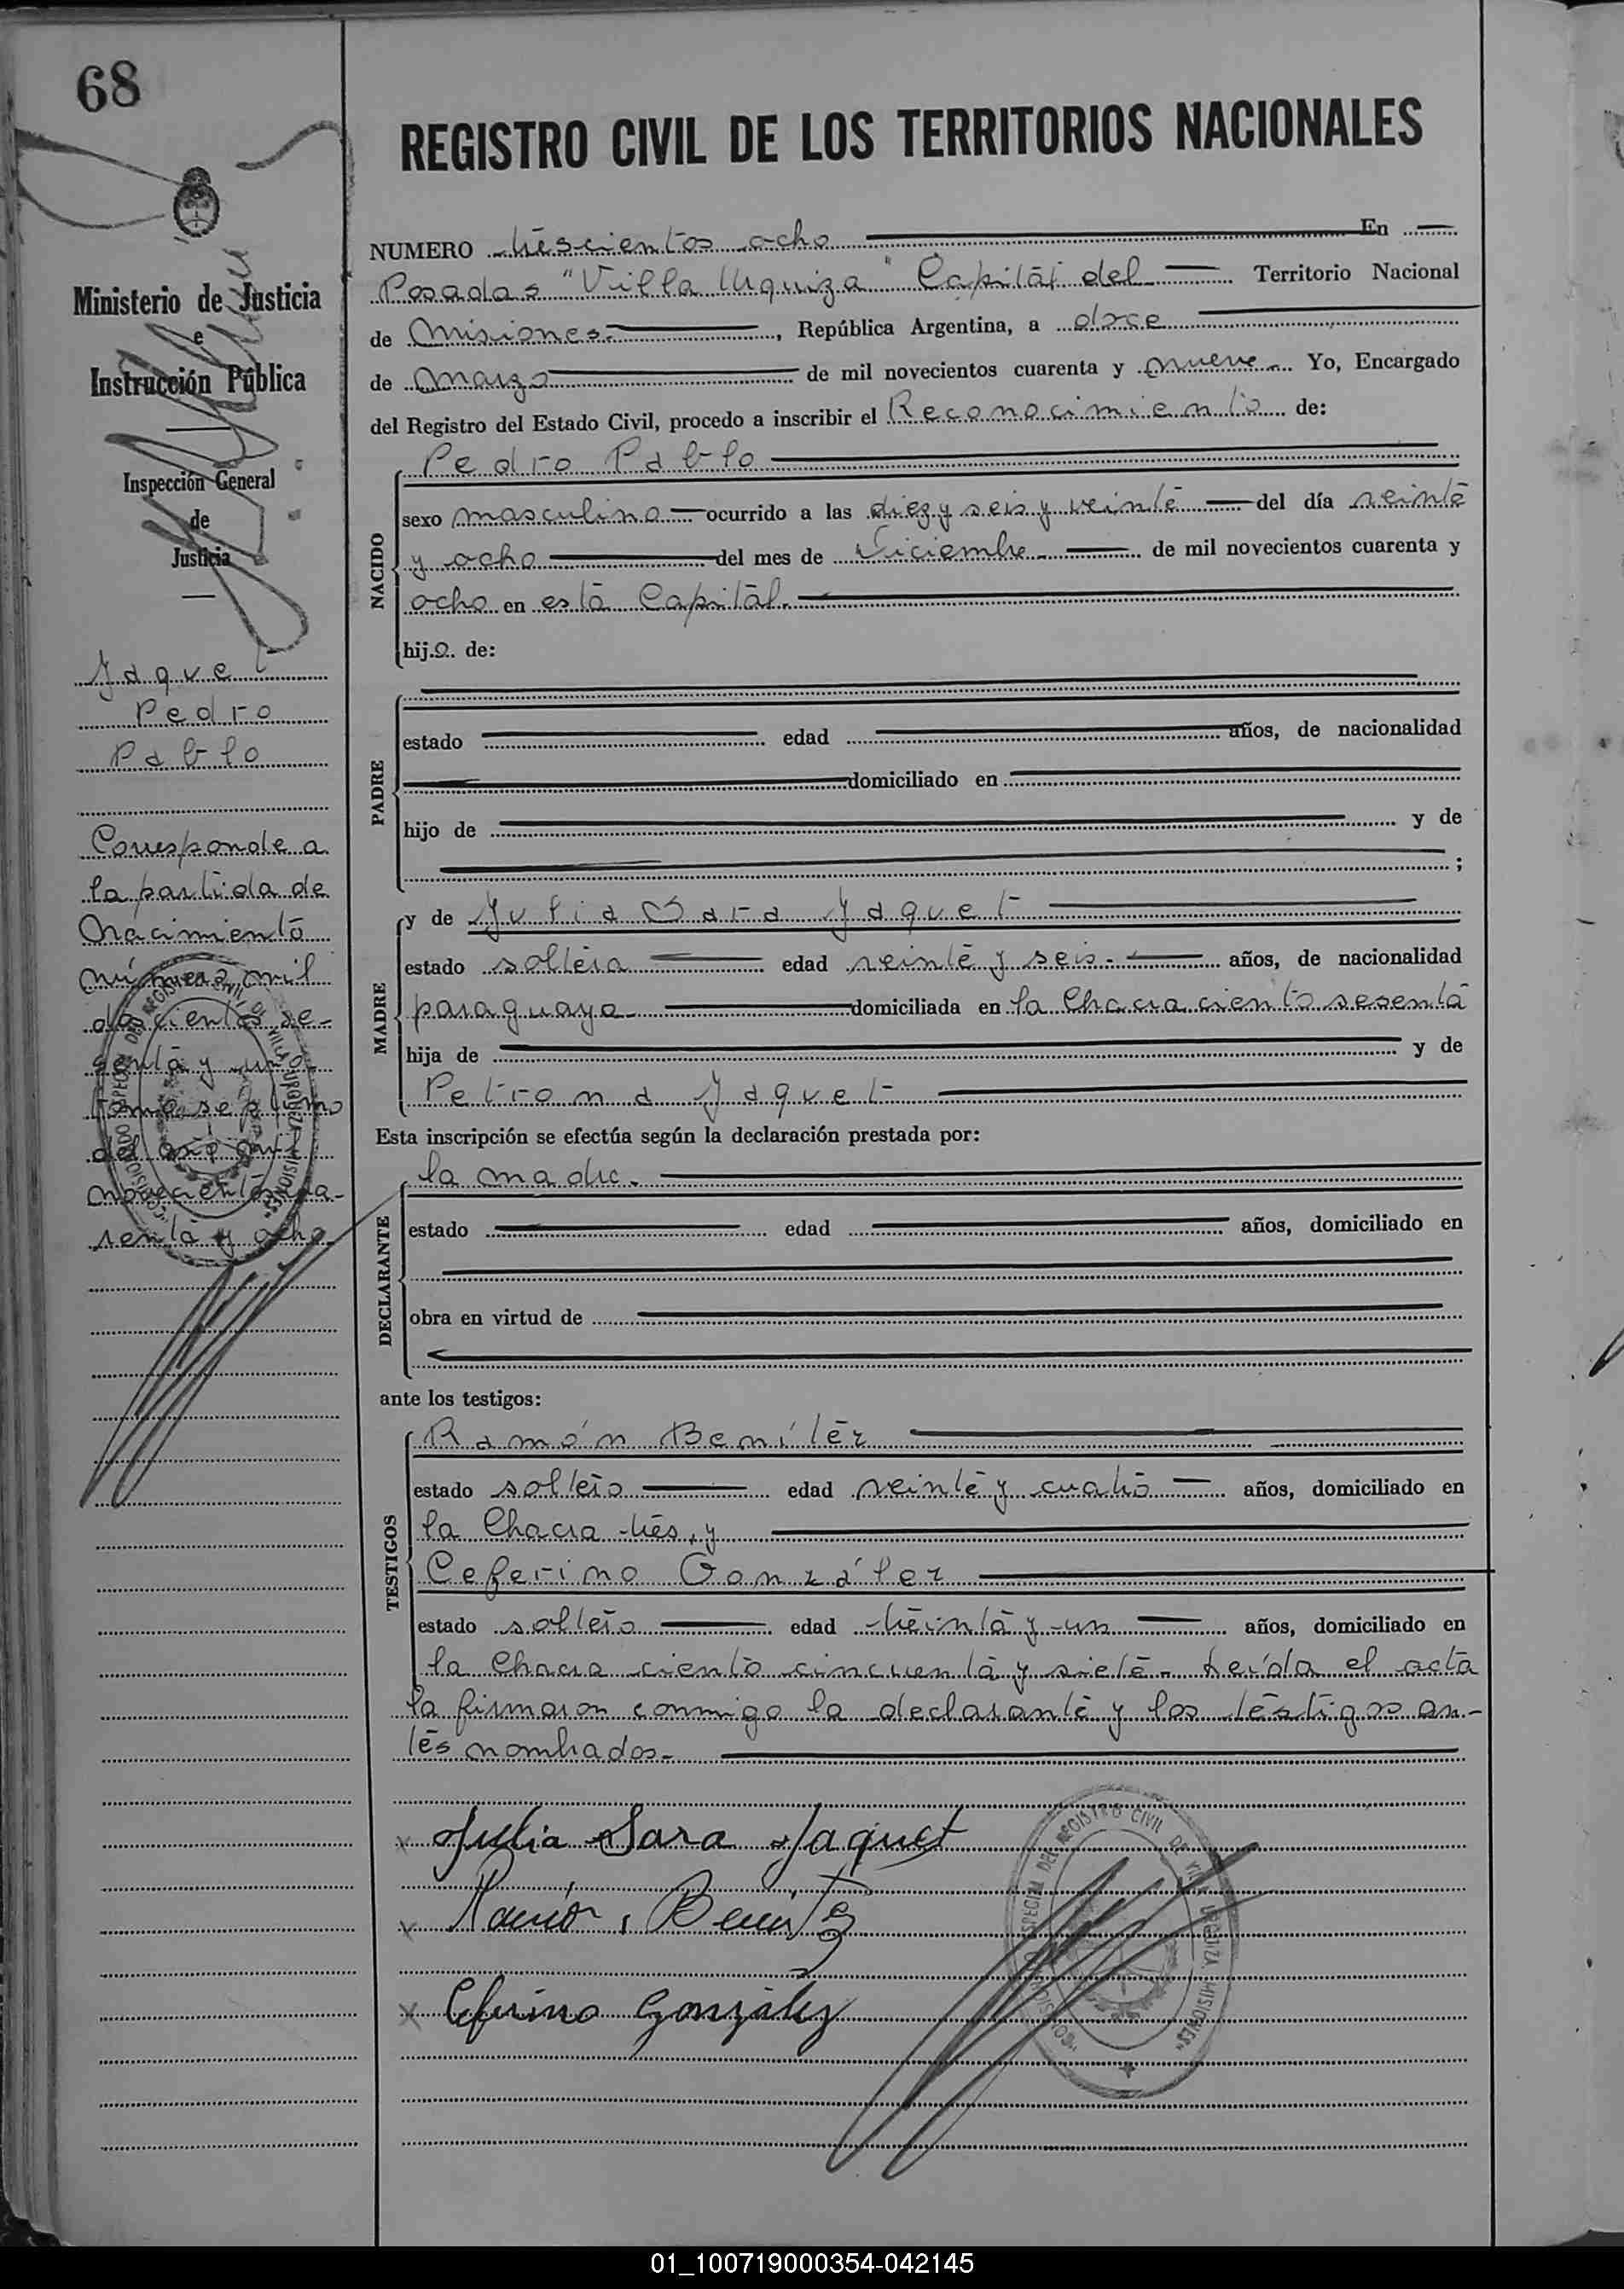 68
REGISTRO CIVIL DE LOS TERRITORIOS NACIONALES
Ministerio de Justicia
e
Instrucción Pública
Inspección General
de
Justicia
Jaquet
Pedro
Pablo
Corresponde a
la partida de
Nacimiento
número mil
doscientos se-
senta y un
tomo séptimo
del año mil
novecientos cua-
renta y ocho
NUMERO trescientos ocho En
Posadas "Villa Urquiza" Capital del Territorio Nacional
de Misiones, República Argentina, a doce
de marzo de mil novecientos cuarenta y nueve. Yo, Encargado
del Registro del Estado Civil, procedo a inscribir el Reconocimiento de:
NACIDO
Pedro Pablo
sexo masculino ocurrido a las diez y seis y veinte del día veinte
y ocho del mes de Diciembre de mil novecientos cuarenta y
ocho en esta Capital.
hijo de:
PADRE
estado edad años, de nacionalidad
domiciliado en
hijo de y de
;
MADRE
y de Julia Sara Jaquet
estado soltera edad veinte y seis años, de nacionalidad
paraguaya domiciliada en la Chacra ciento sesenta
hija de y de
Petrona Jaquet
Esta inscripción se efectúa según la declaración prestada por:
DECLARANTE
la madre.
estado edad años, domiciliado en
obra en virtud de
ante los testigos:
TESTIGOS
Ramón Benítez
estado soltero edad veinte y cuatro años, domiciliado en
la Chacra tres, y
Ceferino González
estado soltero edad treinta y un años, domiciliado en
la Chacra ciento cincuenta y siete. Leída el acta
la firmaron conmigo la declarante y los testigos an-
tes nombrados.
x Julia Sara Jaquet
x Ramón Benítez
x Ceferino González
DEL REGISTRO CIVIL DE VILLA URQUIZA MISIONES
01_100719000354-042145